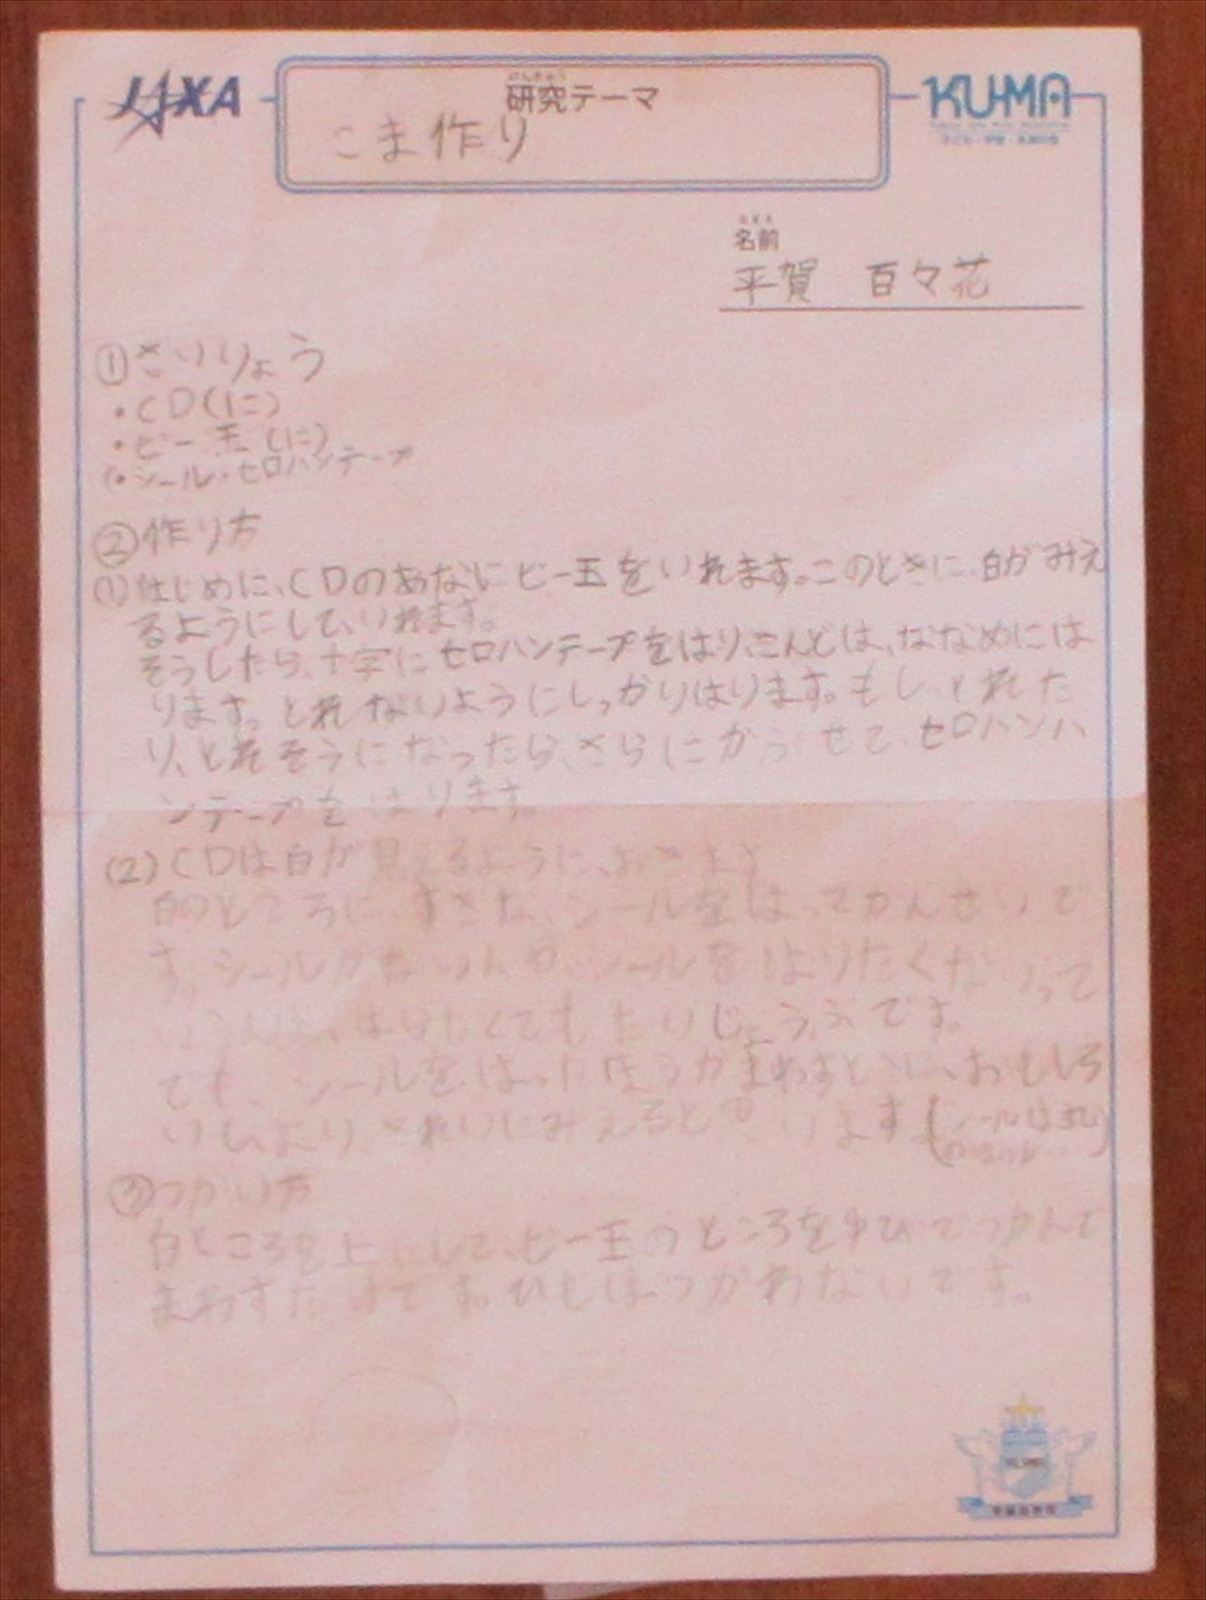 JAXA
けんきゅう
研究テーマ
こま作り
KU-MA
なまえ
名前
平賀 百々花
①ざいりょう
・CD(1こ)
・ビー玉(1こ)
(・シール・セロハンテープ
②作り方
(1)はじめに、CDのあなにビー玉をいれます。このときに、白がみえ
るようにして、いれます。
そうしたら、十字にセロハンテープをはり、こんどは、ななめには
ります。とれないようにしっかりはります。もし、とれた
り、とれそうになったら、さらにかぶせて、セロハンハ
ンテープをはります。
(2)CDは白が見えるように、おきます
白のところに、すきな、シールをはってかんせいで
す。シールがない人や、シールをはりたくないって
いう人は、はらなくてもだいじょうぶです。
でも、シールをはったほうがまわすときに、おもしろ
いし、より、きれいにみえると思います(シールは丸い
③つかい方
白ところを上にして、ビー玉のところをゆびでつかんで
まわすだけです。ひもはつかわないです。